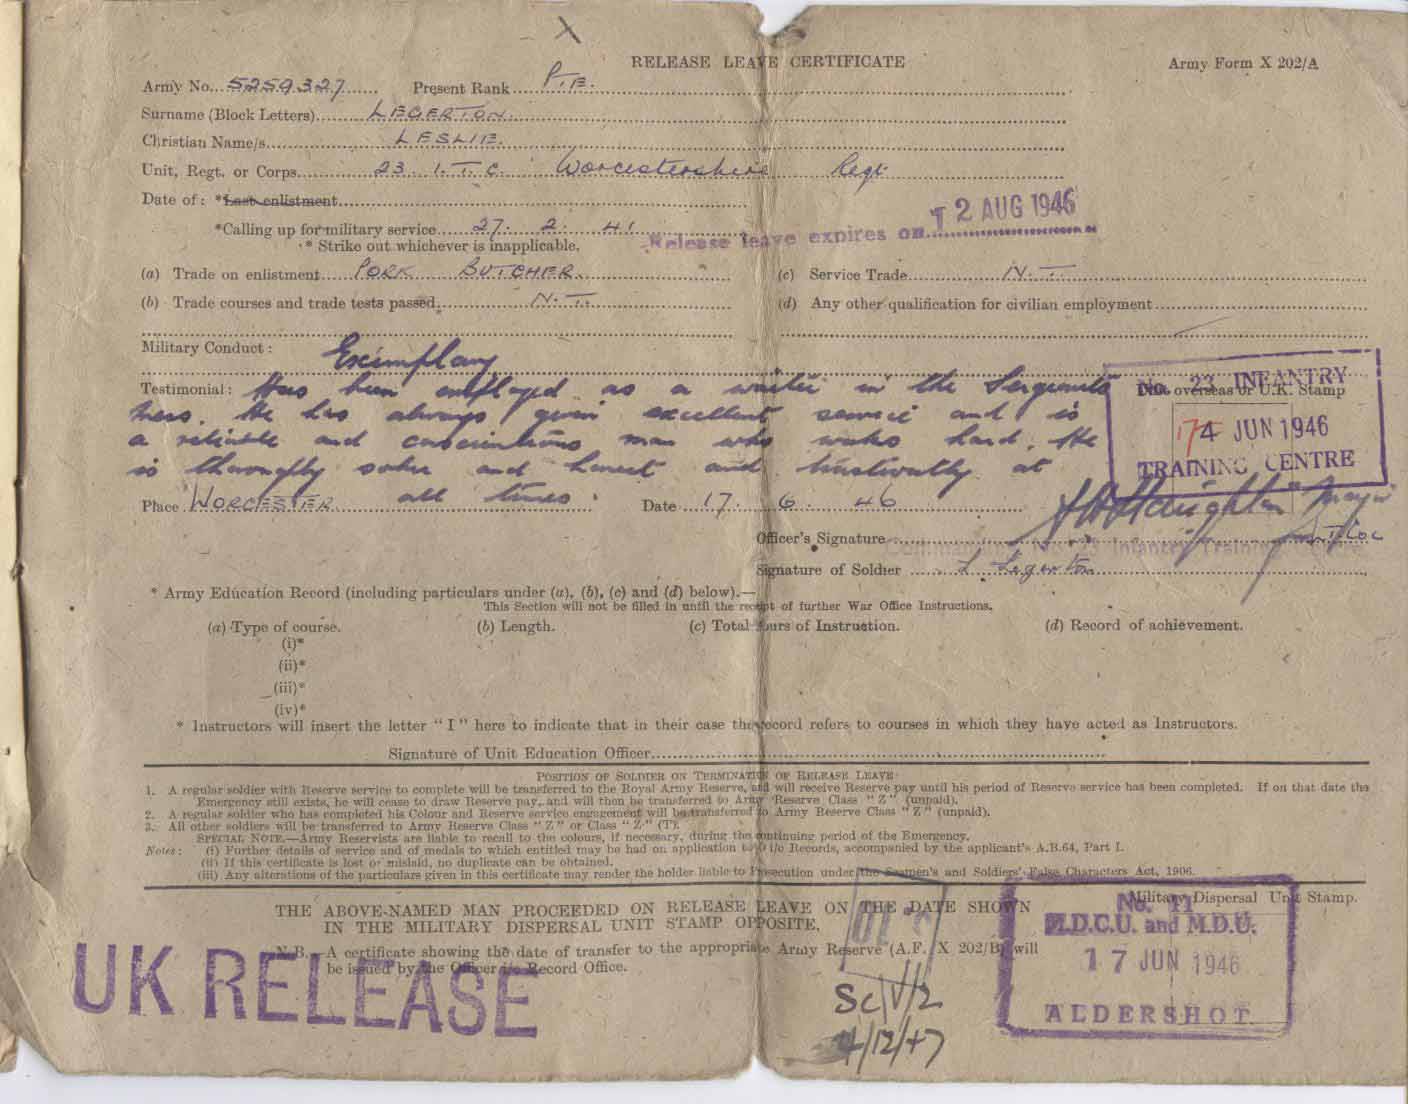 RELEASE LEAVE CERTIFICATE
Army Form X 202/A
Army No. 5259327 Present Rank PTE.
Surname (Block Letters) LEGERTON.
Christian Name/s LESLIE.
Unit, Regt. or Corps 23. I.T.C. Worcestershire Regt.
Date of: *Last enlistment
*Calling up for military service 27. 2. 41.
* Strike out whichever is inapplicable.
Release leave expires on 12 AUG 1946
(a) Trade on enlistment PORK BUTCHER
(c) Service Trade N.T.
(b) Trade courses and trade tests passed. N.T.
(d) Any other qualification for civilian employment
Military Conduct: Exemplary
Testimonial: Has been employed as a waiter in the Sergeants
Mess. He has always given excellent service and is
a reliable and conscientious man who works hard. He
is thoroughly sober and honest and trustworthy at
all times.
Unit overseas or U.K. Stamp
No. 23 INFANTRY
17 4 JUN 1946
TRAINING CENTRE
Place WORCESTER Date 17. 6. 46
Officer's Signature Major
Commanding No. 23 Infantry Training Centre
Signature of Soldier L Legerton
* Army Education Record (including particulars under (a), (b), (c) and (d) below).—
This Section will not be filled in until the receipt of further War Office Instructions.
(a) Type of course. (b) Length. (c) Total hours of Instruction. (d) Record of achievement.
(i)*
(ii)*
(iii)*
(iv)*
* Instructors will insert the letter “ I ” here to indicate that in their case the record refers to courses in which they have acted as Instructors.
Signature of Unit Education Officer
POSITION OF SOLDIER ON TERMINATION OF RELEASE LEAVE
1. A regular soldier with Reserve service to complete will be transferred to the Royal Army Reserve, and will receive Reserve pay until his period of Reserve service has been completed. If on that date the
Emergency still exists, he will cease to draw Reserve pay, and will then be transferred to Army Reserve Class “ Z ” (unpaid).
2. A regular soldier who has completed his Colour and Reserve service engagement will be transferred to Army Reserve Class “ Z ” (unpaid).
3. All other soldiers will be transferred to Army Reserve Class “ Z ” or Class “ Z ” (T).
SPECIAL NOTE.—Army Reservists are liable to recall to the colours, if necessary, during the continuing period of the Emergency.
Notes: (i) Further details of service and of medals to which entitled may be had on application to O i/c Records, accompanied by the applicant's A.B.64, Part I.
(ii) If this certificate is lost or mislaid, no duplicate can be obtained.
(iii) Any alterations of the particulars given in this certificate may render the holder liable to Prosecution under the Seamen's and Soldiers' False Characters Act, 1906.
THE ABOVE-NAMED MAN PROCEEDED ON RELEASE LEAVE ON THE DATE SHOWN
IN THE MILITARY DISPERSAL UNIT STAMP OPPOSITE.
N.B.—A certificate showing the date of transfer to the appropriate Army Reserve (A.F. X 202/B) will
be issued by the Officer i/c Record Office.
Military Dispersal Unit Stamp.
No. 11
M.D.C.U. and M.D.U.
17 JUN 1946
ALDERSHOT
UK RELEASE
4/12/47